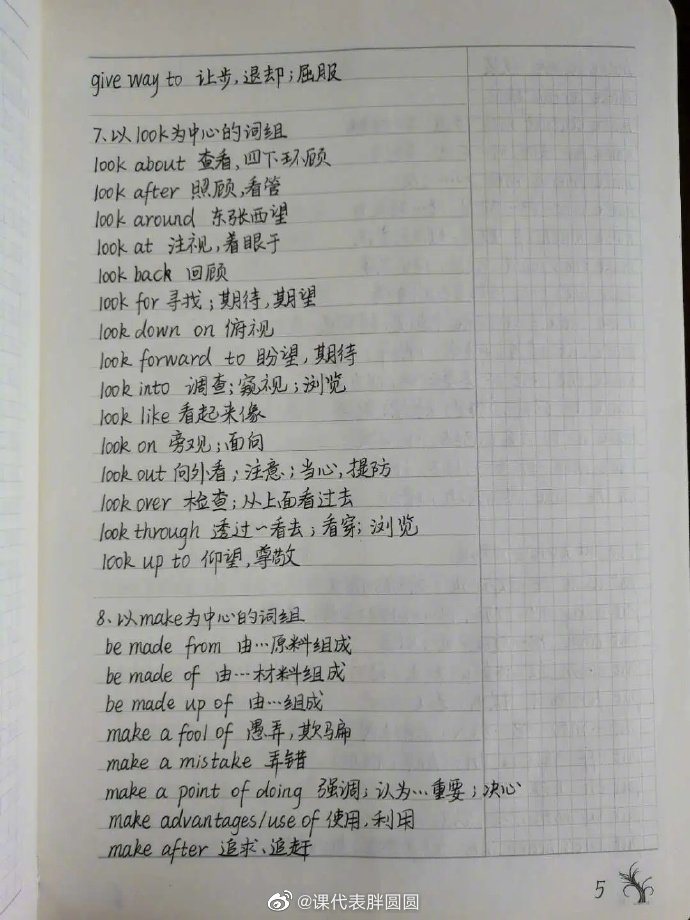 give way to 让步,退却;屈服
7、以look为中心的词组
look about 查看,四下环顾
look after 照顾,看管
look around 东张西望
look at 注视,着眼于
look back 回顾
look for 寻找;期待,期望
look down on 俯视
look forward to 盼望,期待
look into 调查;窥视;浏览
look like 看起来像
look on 旁观;面向
look out 向外看;注意;当心,提防
look over 检查;从上面看过去
look through 透过…看去;看穿;浏览
look up to 仰望,尊敬
8、以make为中心的词组
be made from 由…原料组成
be made of 由…材料组成
be made up of 由…组成
make a fool of 愚弄,欺骗
make a mistake 弄错
make a point of doing 强调;认为…重要;决心
make advantages/use of 使用,利用
make after 追求、追赶
5
@课代表胖圆圆